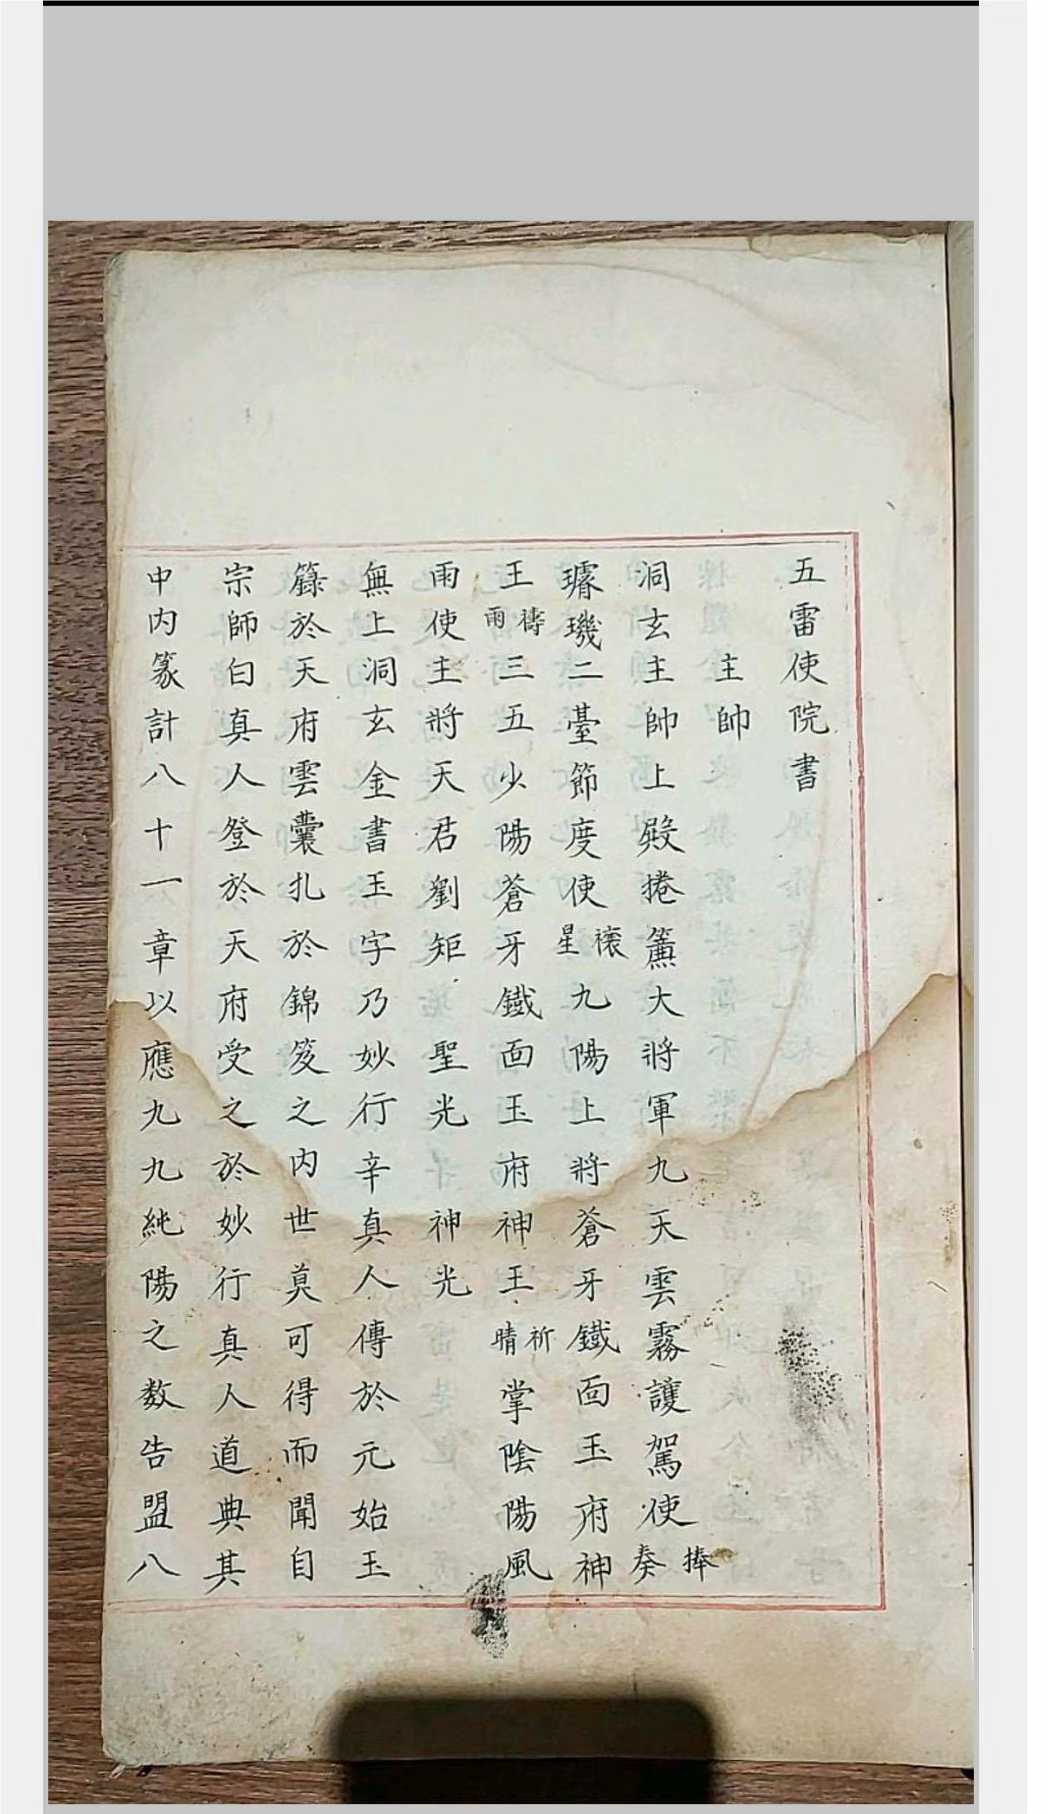 五雷使院書
主帥
洞玄主帥上殿捲簾大將軍九天雲霧護駕使捧奏
璿璣二臺節度使禳星九陽上將蒼牙鐵面玉府神
王禱雨三五少陽蒼牙鐵面玉府神王祈晴掌陰陽風
雨使主將天君劉矩聖光神光
無上洞玄金書玉字乃妙行辛真人傳於元始玉
籙於天府雲囊扎於錦笈之内世莫可得而聞自
宗師白真人登於天府受之於妙行真人道典其
中内篆計八十一章以應九九純陽之数告盟八